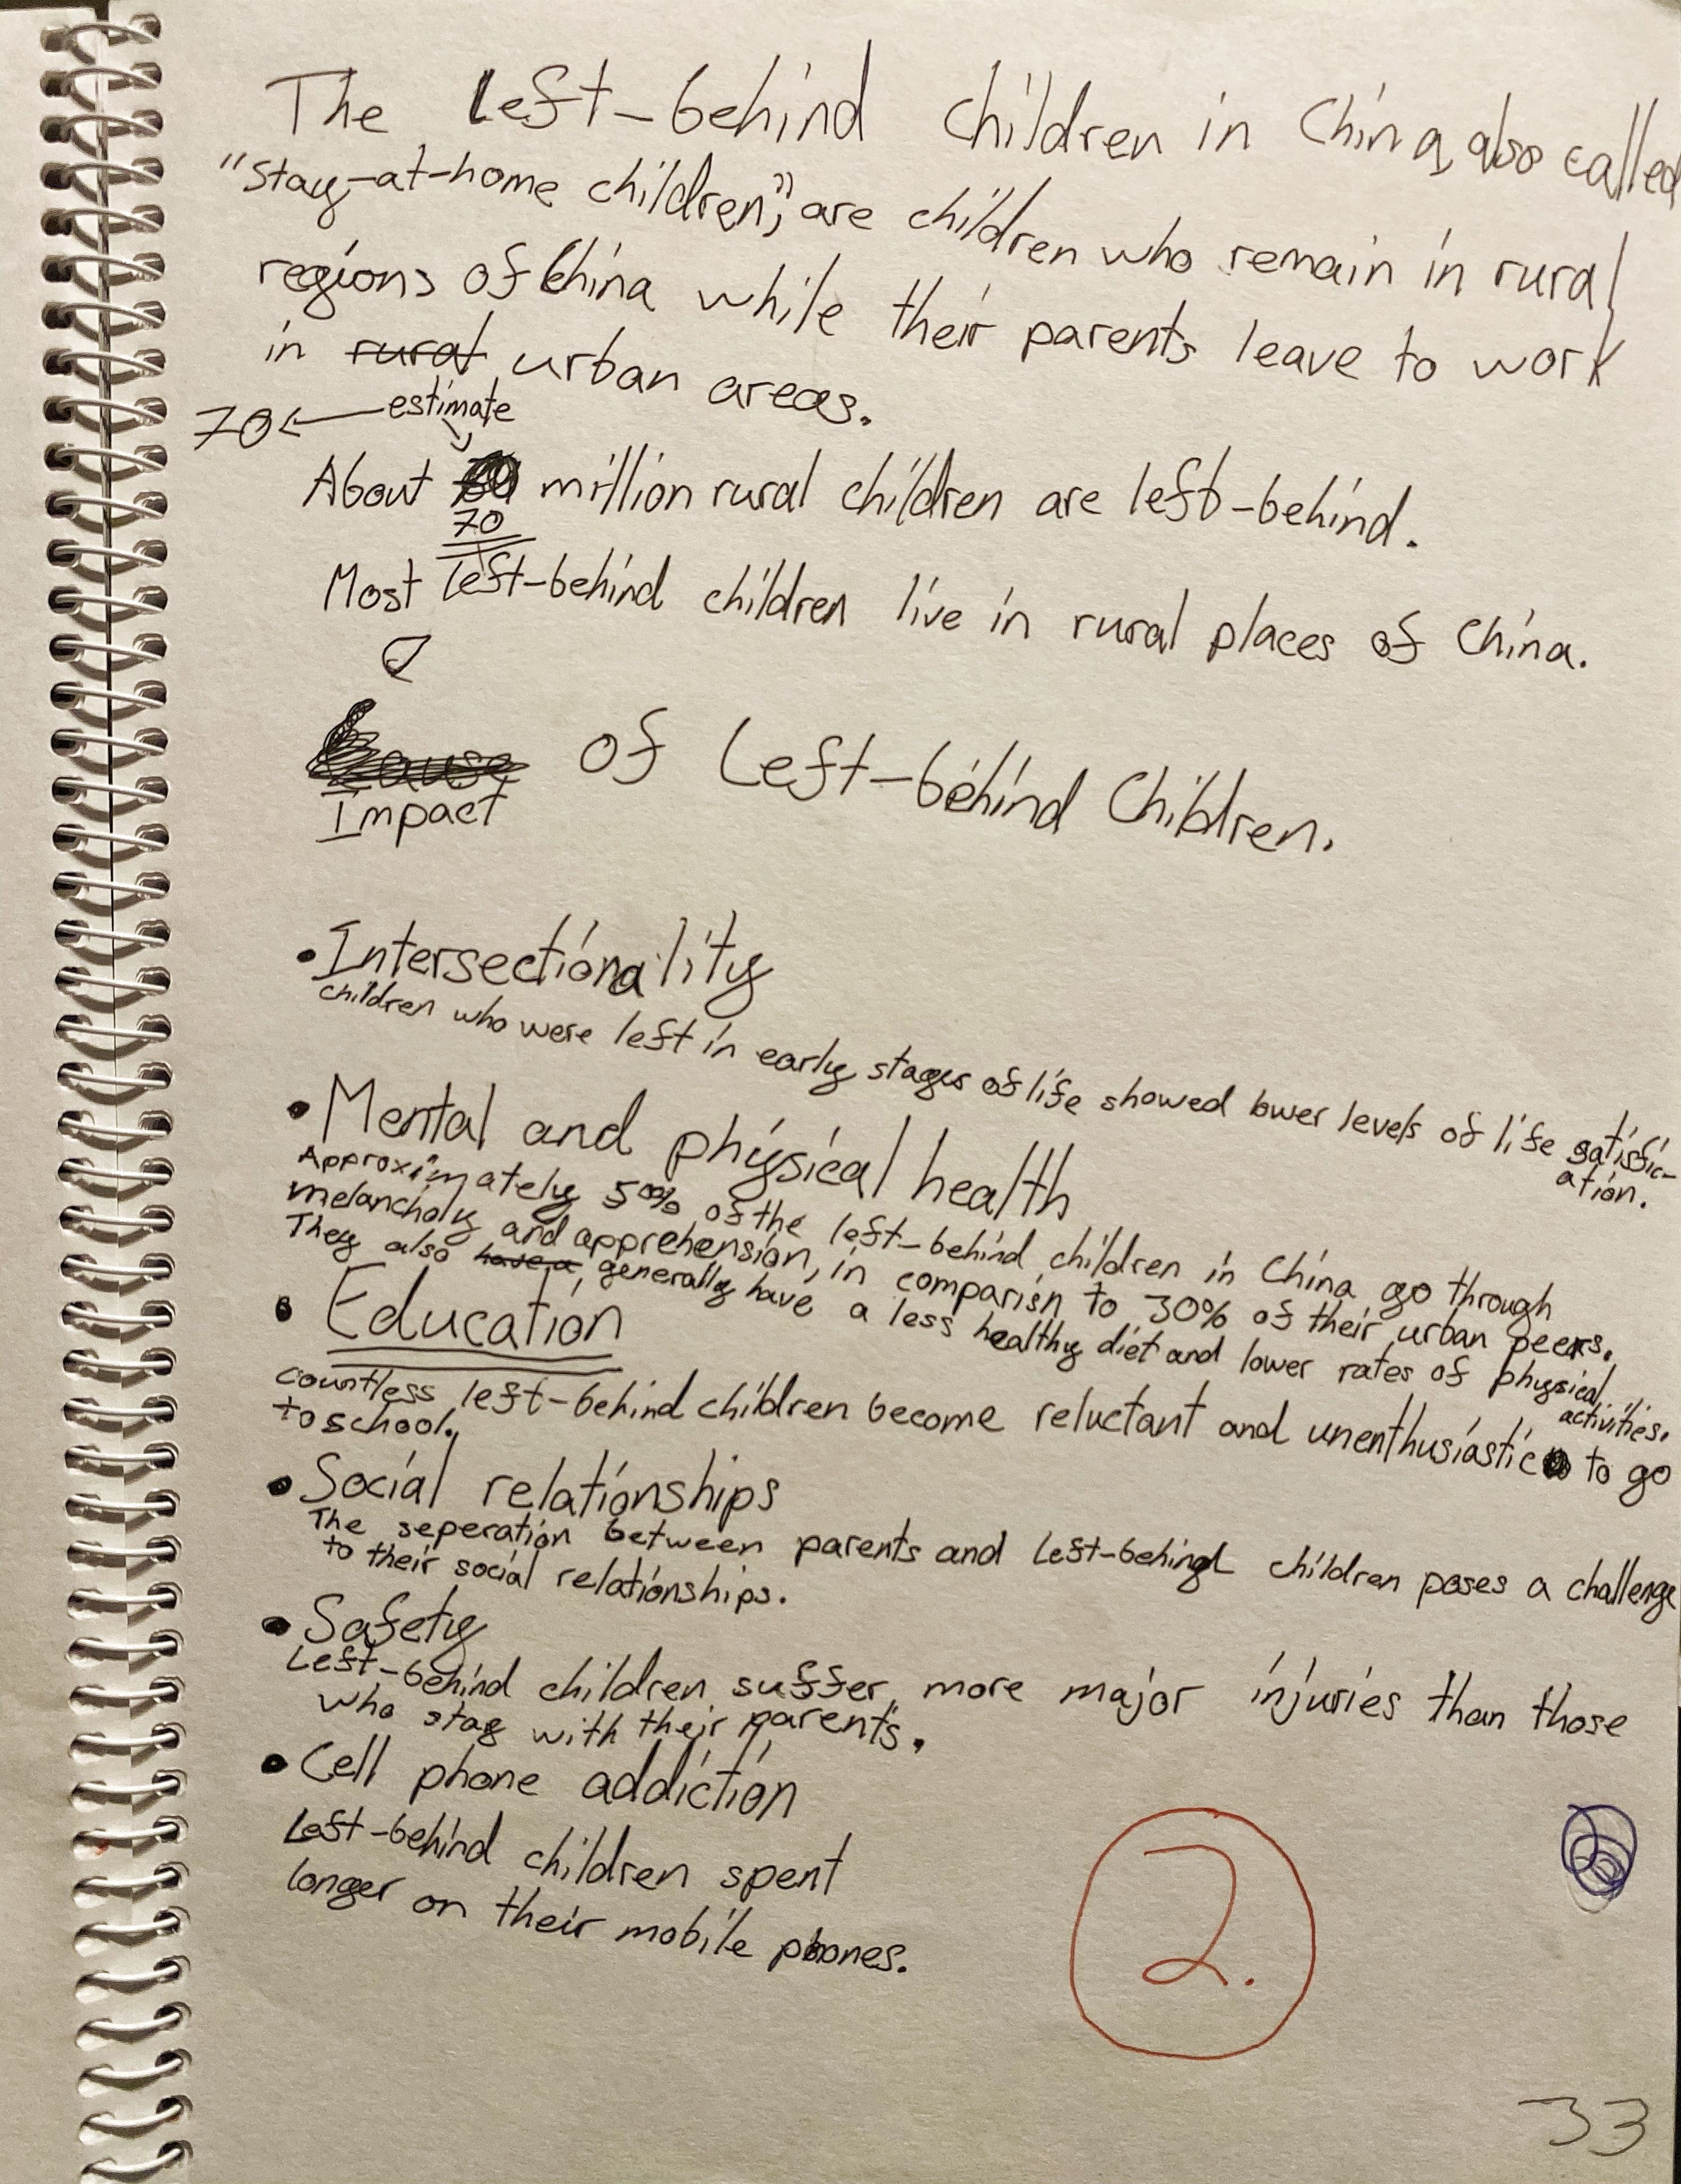 The Left-behind children in China, also called
"stay-at-home children", are children who remain in rural
regions of China while their parents leave to work
in rural urban areas.
70 ← estimate
About million rural children are left-behind.
70
Most left-behind children live in rural places of China.
Cause of Left-behind Children.
Impact
• Intersectionality
children who were left in early stages of life showed lower levels of life satisfic-
ation.
• Mental and physical health
Approximately 50% of the left-behind children in China go through
melancholy and apprehension, in comparisn to 30% of their urban peers.
They also have a generally have a less healthy diet and lower rates of physical
activities.
• Education
countless left-behind children become reluctant and unenthusiastic to go
to school.
• Social relationships
The seperation between parents and Left-behind children poses a challenge
to their social relationships.
• Safety
Left-behind children suffer more major injuries than those
who stay with their parents.
• Cell phone addiction
Left-behind children spent
longer on their mobile phones.
2.
33